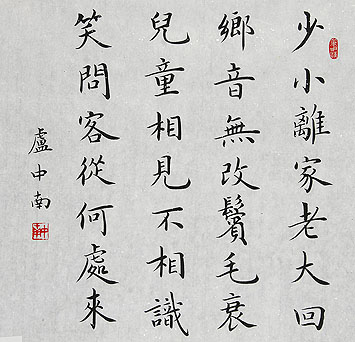 少小離家老大回
鄉音無改鬢毛衰
兒童相見不相識
笑問客從何處來
盧中南